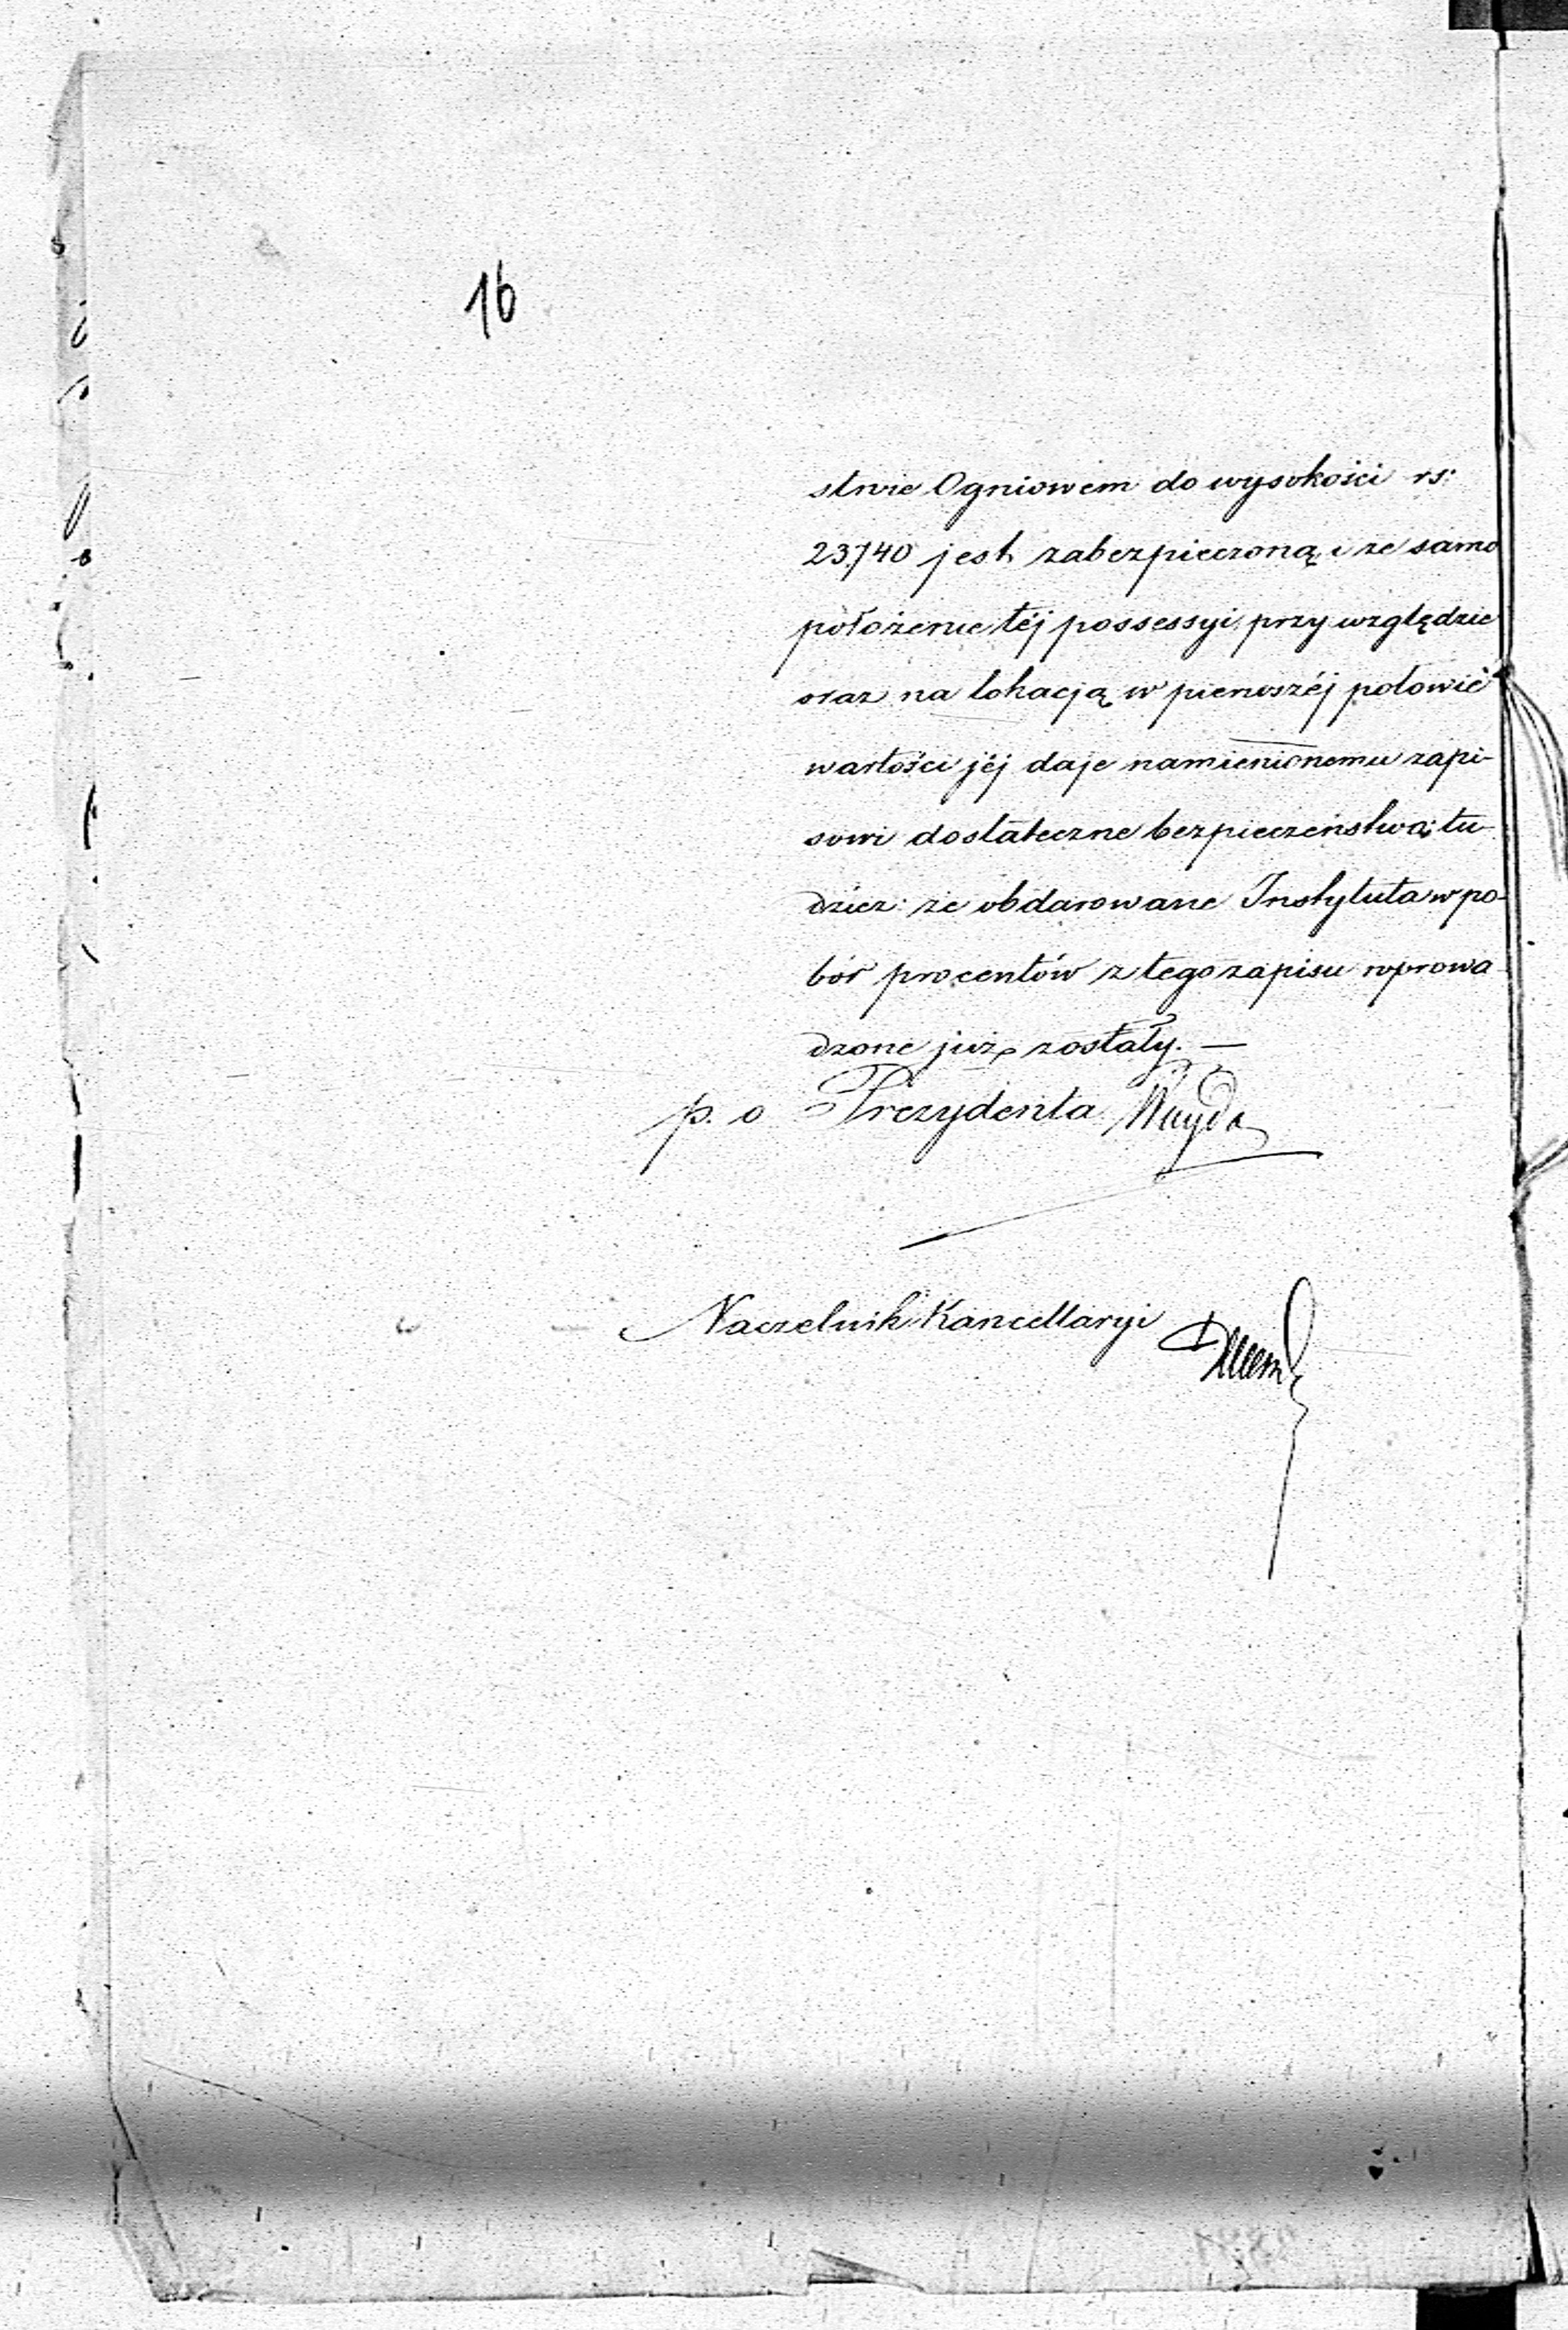 16
stwie Ogniowem do wysokości rs:
23,740 jest zabezpieczoną, i że samo
położenie téj possessyi, przy względzie
oraz na lokacją w pierwszéj połowie
wartości jéj daje namienionemu zapi-
sowi dostateczne bezpieczeństwo; tu-
dzież: że obdarowane Instytuta w po-
bór procentów z tego zapisu wprowa-
dzone już zostały. —
p. o Prezydenta
Naczelnik Kancellaryi